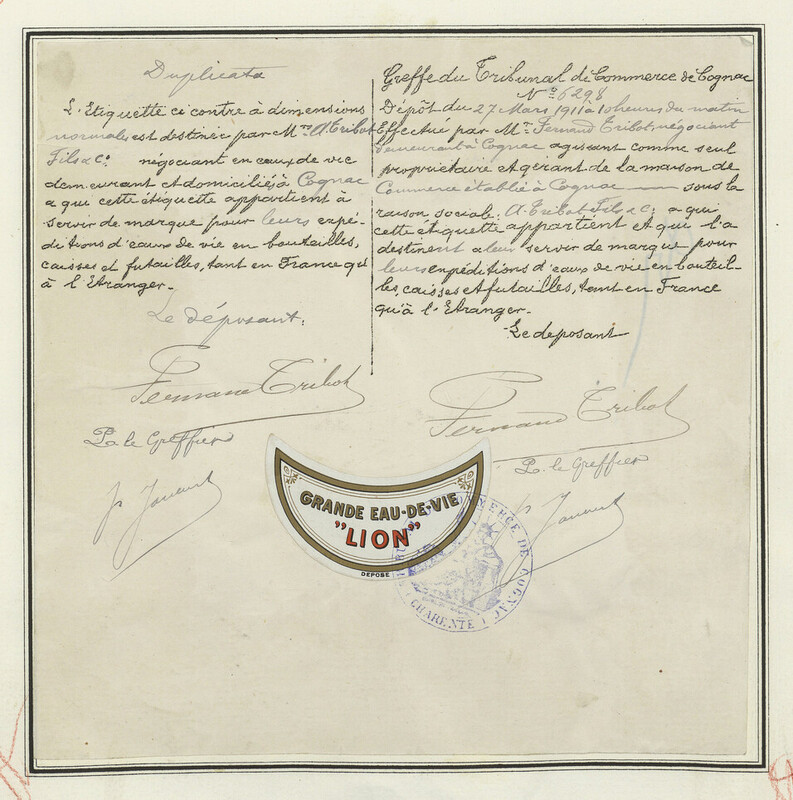 Duplicata
L'Etiquette ci contre à dimensions
normales est destinée par Mrs A. Tribot
Fils & Co. négociant en eaux de vie
demeurant et domiciliés à Cognac
a qui cette étiquette appartient à
servir de marque pour leurs expé-
ditions d'eaux de vie en bouteilles,
caisses et futailles, tant en France qu'
à l'Etranger.-
Le déposant:
Fernand Tribot
P. le Greffier
Greffe du Tribunal de Commerce de Cognac
No 6298
Dépôt du 27 Mars 1911 à 10 heures du matin
Effectué par Mr. Fernand Tribot, négociant
demeurant à Cognac agissant comme seul
propriétaire et gérant de la maison de
Commerce établie à Cognac — sous la
raison sociale: A. Tribot Fils & Co. a qui
cette étiquette appartient et qui l'a
destinent a leur servir de marque pour
leurs expéditions d'eaux de vie en bouteil-
les, caisses et futailles, tant en France
qu'à l'Etranger.-
Le deposant
Fernand Tribot
P. le Greffier
GRANDE EAU-DE-VIE
"LION"
DEPOSÉ
COMMERCE DE COGNAC
CHARENTE